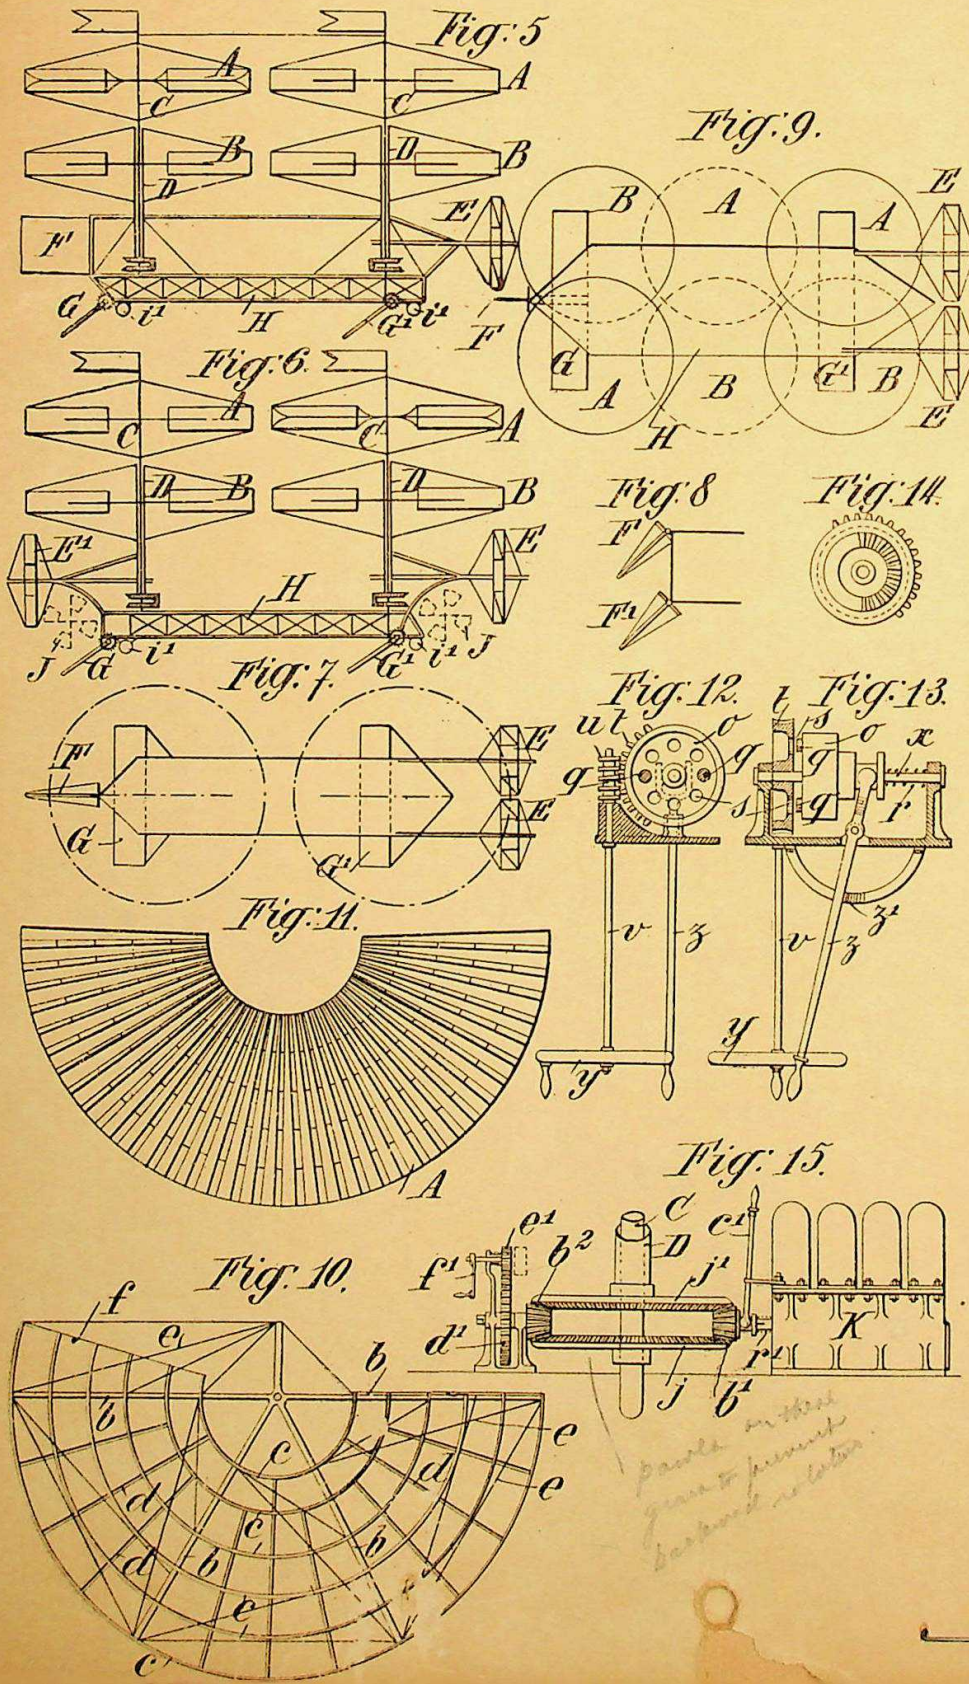 Fig: 5
A
A
C
C
B
B
D
D
E
F
G
i¹
H
G¹
i¹
Fig: 9.
B
A
A
E
F
G
A
B
G¹
B
E
H
Fig: 6.
A
A
C
C
D
B
D
B
E¹
E
H
J
G
i¹
G¹
i¹
J
Fig: 8
F
F¹
Fig: 14.
Fig: 7.
F
E
G
G¹
E
Fig: 12.
u
t
o
q
q
s
v
z
y
Fig: 13.
t
s
o
x
q
q
r
z¹
v
z
y
Fig: 11.
A
Fig: 15.
C
D
c¹
e¹
b²
f¹
j¹
d¹
K
r¹
j
b¹
Fig: 10.
f
e
b
b
c
e
d
d
e
c
d
b
b
e
c
pawls on these
gears to prevent
backward rotation.